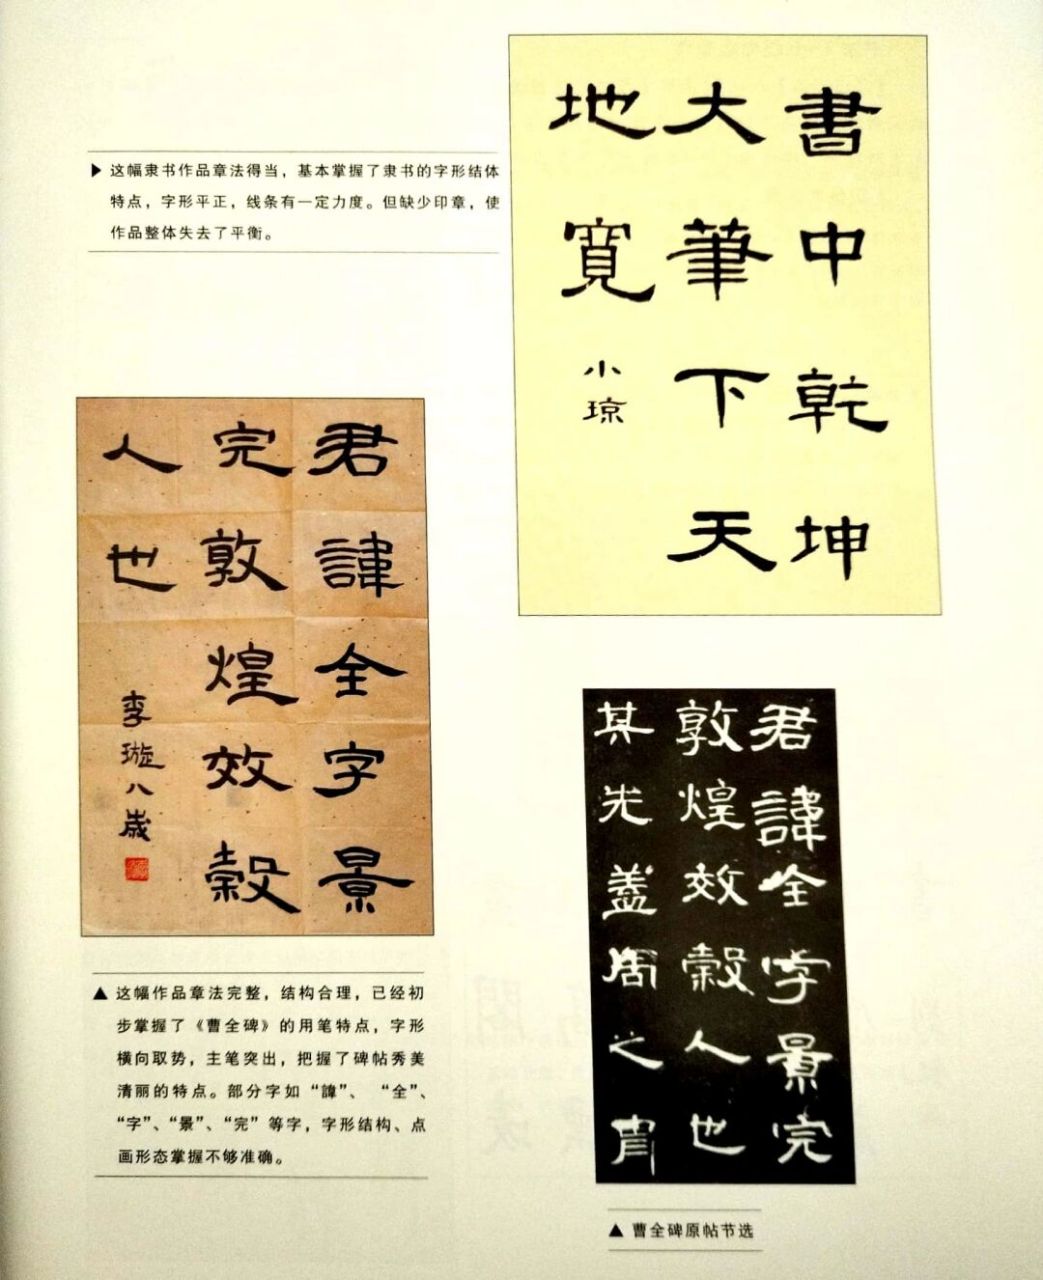 ▶ 这幅隶书作品章法得当，基本掌握了隶书的字形结体
特点，字形平正，线条有一定力度。但缺少印章，使
作品整体失去了平衡。
書中乾坤
大筆下天
地寬
小琼
君諱全字景
完敦煌效穀
人也
李璇八歲
▲ 这幅作品章法完整，结构合理，已经初
步掌握了《曹全碑》的用笔特点，字形
横向取势，主笔突出，把握了碑帖秀美
清丽的特点。部分字如“諱”、“全”、
“字”、“景”、“完”等字，字形结构、点
画形态掌握不够准确。
君諱全字景完
敦煌效穀人也
其先蓋周之胄
▲ 曹全碑原帖节选